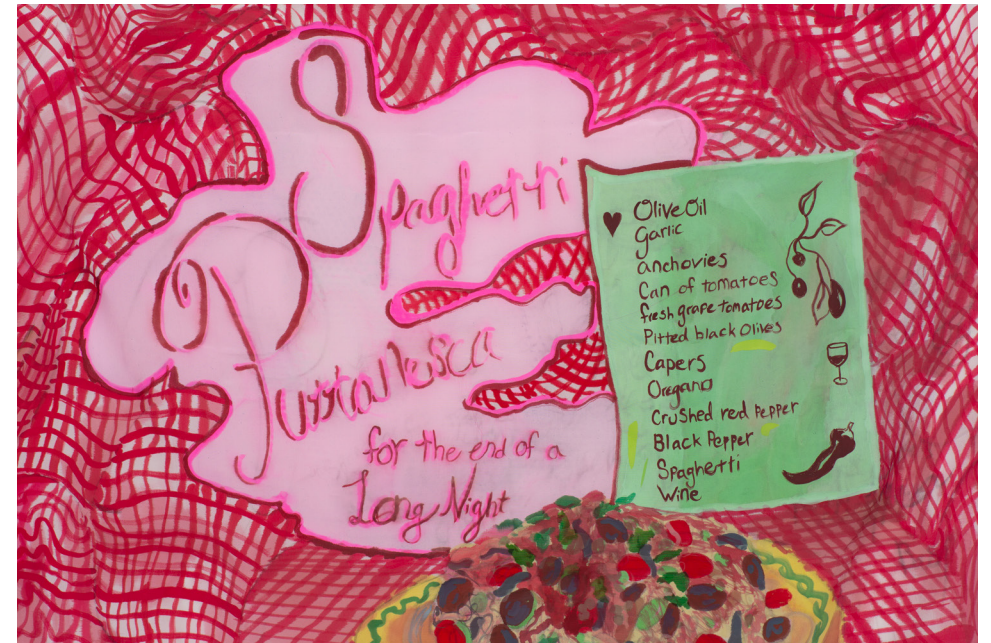 Spaghetti
Puttanesca
for the end of a
Long Night
Olive Oil
Garlic
anchovies
Can of tomatoes
fresh grape tomatoes
Pitted black Olives
Capers
Oregano
Crushed red Pepper
Black Pepper
Spaghetti
Wine